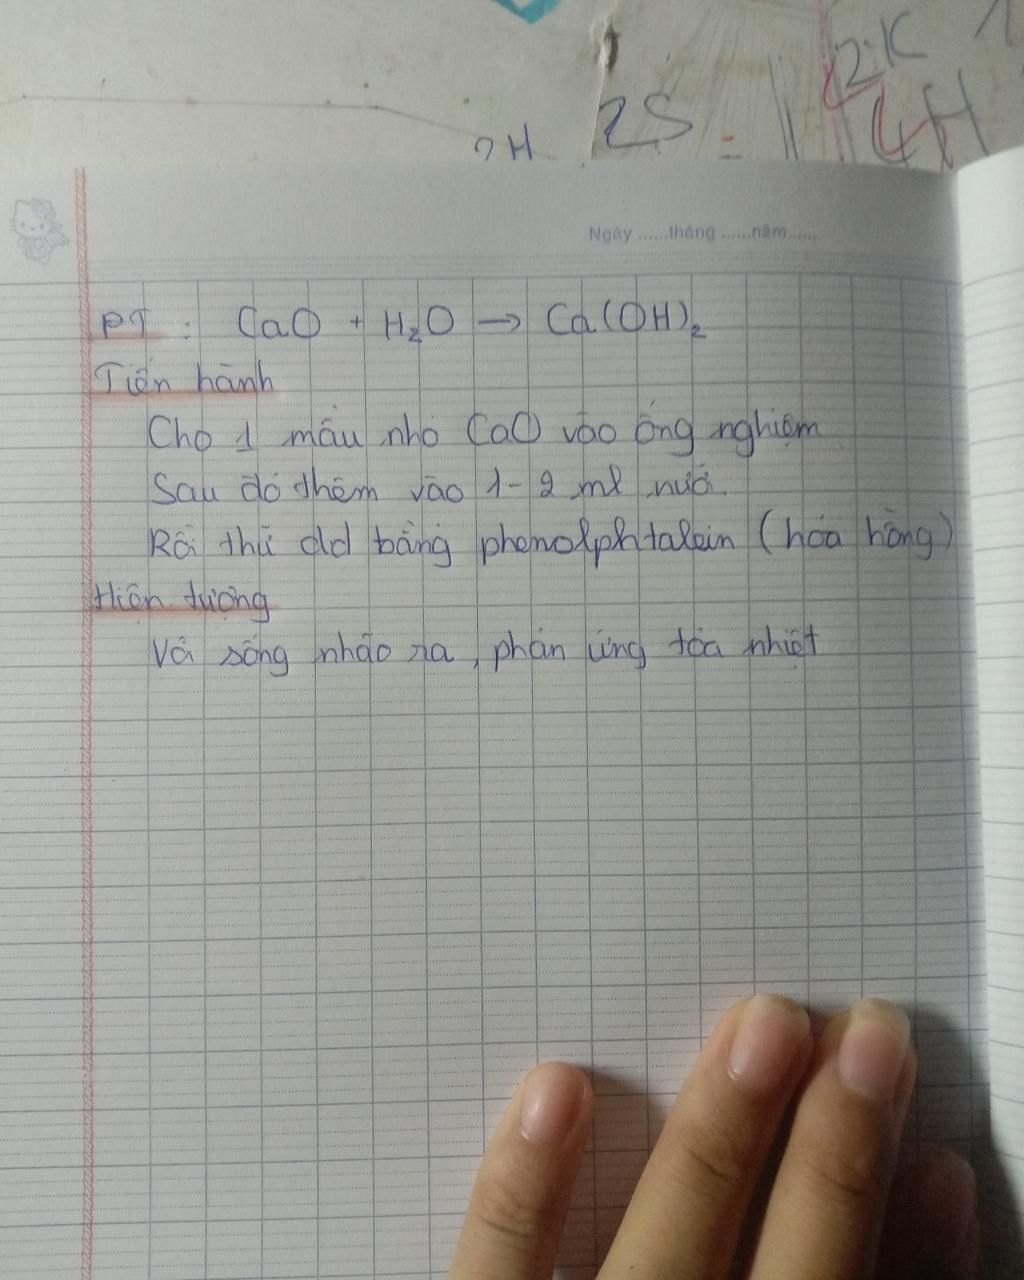 2K
2H 2S = 4H
Ngày ......tháng ......năm......
PT : CaO + H₂O → Ca(OH)₂
Tiến hành
Cho 1 mẩu nhỏ CaO vào ống nghiệm
Sau đó thêm vào 1-2 ml nước
Rồi thử dd bằng phenolphtalein (hóa hồng)
Hiện tượng
Vôi sống nhão ra, phản ứng tỏa nhiệt